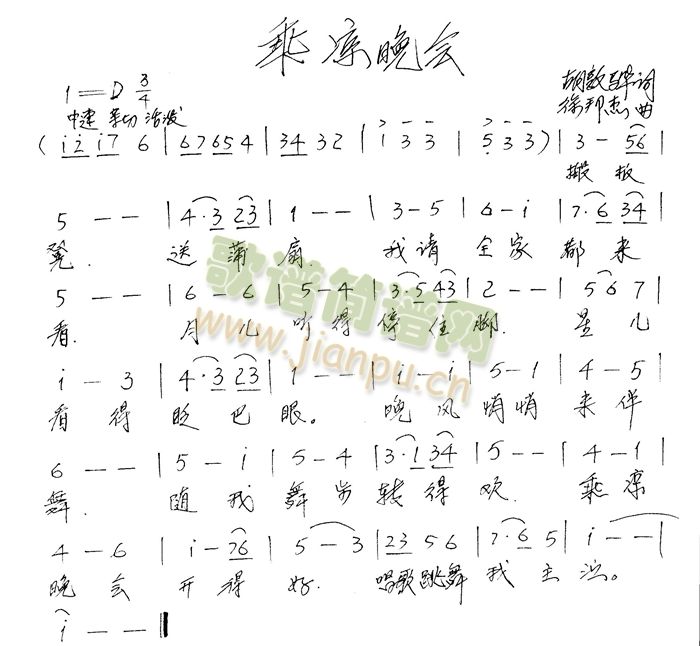 乘凉晚会
1=D 3/4
中速 亲切 活泼
胡敦骅 词
徐邦杰 曲
( i 2 i 7 6 | 6 7 6 5 4 | 3 4 3 2 | i 3 3 | 5 3 3 ) | 3 - 5 6 |
搬 板
5 - - | 4 · 3 2 3 | 1 - - | 3 - 5 | 6 - i | 7 · 6 3 4 |
凳. 送 蒲 扇. 我 请 全 家 都 来
5 - - | 6 - 6 | 5 - 4 | 3 · 5 4 3 | 2 - - | 5 6 7 |
看. 月 儿 听 得 停 住 脚. 星 儿
i - 3 | 4 · 3 2 3 | 1 - - | i - i | 5 - 1 | 4 - 5 |
看 得 眨 巴 眼。 晚 风 悄 悄 来 伴
6 - - | 5 - i | 5 - 4 | 3 · 1 3 4 | 5 - - | 4 - 1 |
舞. 随 我 舞 步 转 得 欢. 乘 凉
4 - 6 | i - 7 6 | 5 - 3 | 2 3 5 6 | 7 · 6 5 | i - - |
晚 会 开 得 好. 唱歌 跳舞 我 主 演。
i - - ‖
歌谱简谱网
www.jianpu.cn